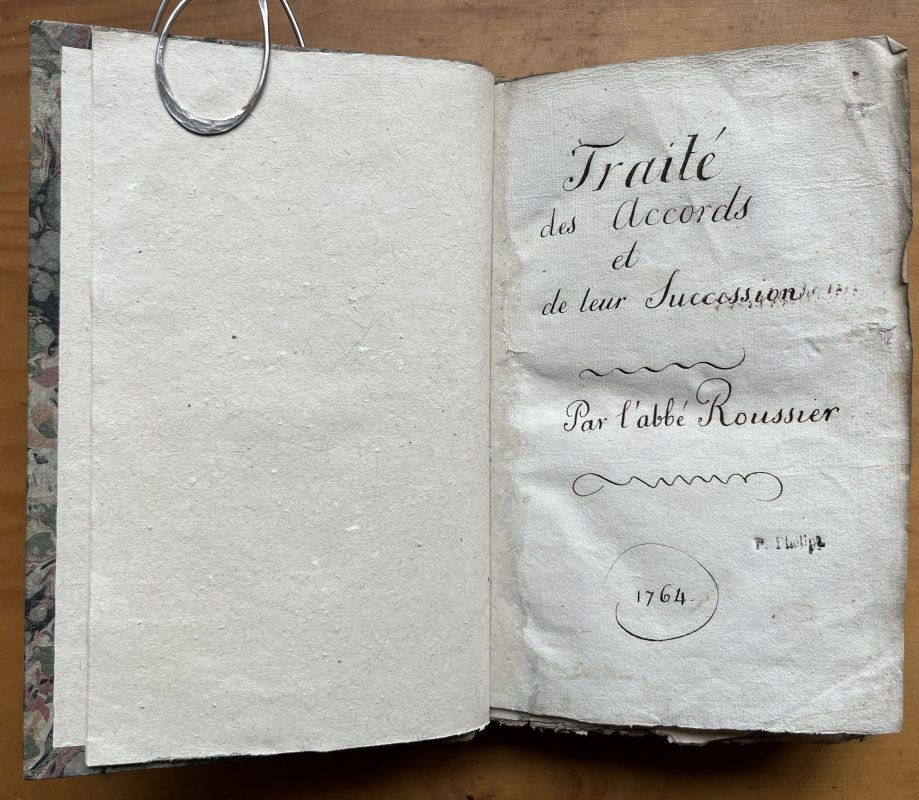 Traité
des Accords
et
de leur Succession
Par l'abbé Roussier
P.
1764.